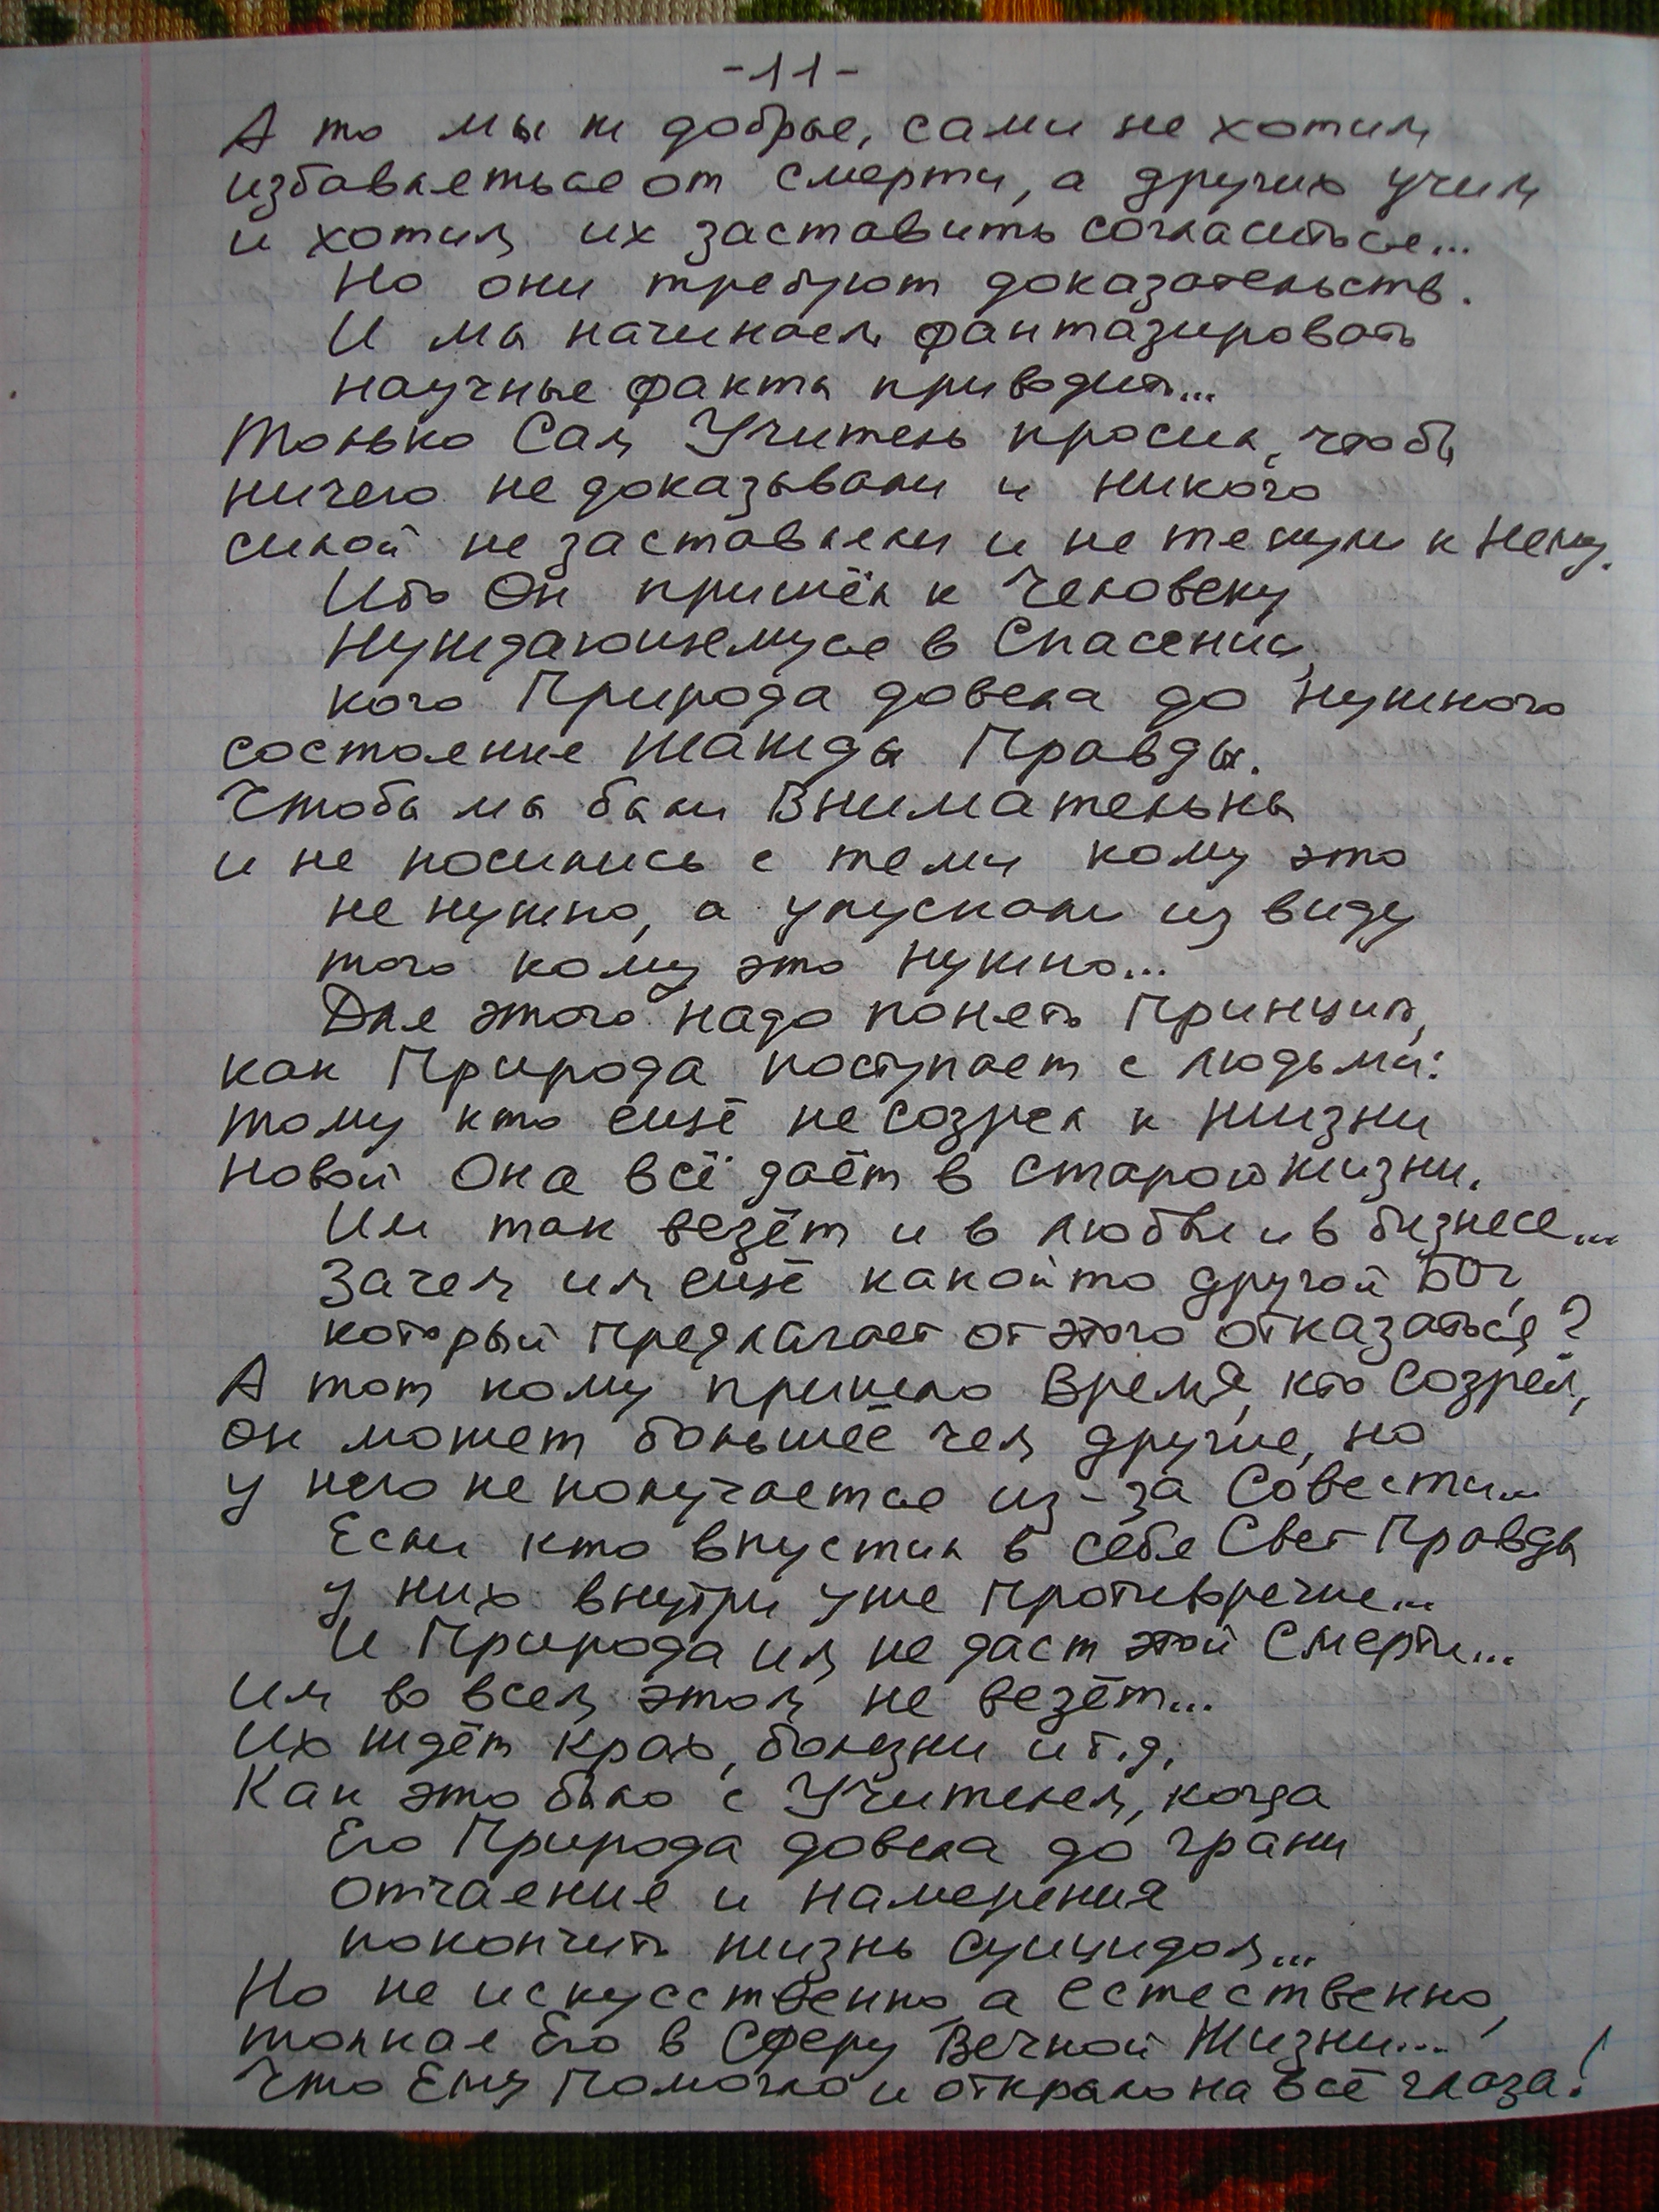 -11-
А то мы ж добрые, сами не хотим
избавляться от смерти, а других учим
и хотим их заставить согласиться...
Но они требуют доказательств.
И мы начинаем фантазировать
научные факты приводить...
Только Сам Учитель просил, чтобы
ничего не доказывали и никого
силой не заставляли и не тянули к Нему.
Ибо Он пришёл к Человеку
Нуждающемуся в Спасении,
кого Природа довела до Нужного
состояние Жажды Правды.
Чтобы мы были Внимательны
и не носились с теми кому это
не нужно, а упускали из виду
того кому это Нужно...
Для этого надо понять Принцип,
как Природа поступает с людьми:
тому кто ещё не созрел к жизни
новой Она всё даёт в старой жизни.
Им так везёт и в любви и в бизнесе...
Зачем им ещё какой то другой БОг,
который Предлагает от этого отказаться?
А тот кому пришло Время, кто Созрел,
он может большее чем другие, но
у него не получается из-за Совести...
Если кто впустил в себя Свет Правды
у них внутри уже Противоречие...
И Природа им не даст этой Смерти...
Им во всем этом не везёт...
Их ждёт крах, болезни и т.д.
Как это было с Учителем, когда
Его Природа довела до грани
отчаяние и намерения
покончить жизнь суицидом...
Но не искусственно, а Естественно,
толкая Его в Сферу Вечной Жизни...
Что Ему Помогло и открыло на всё глаза!